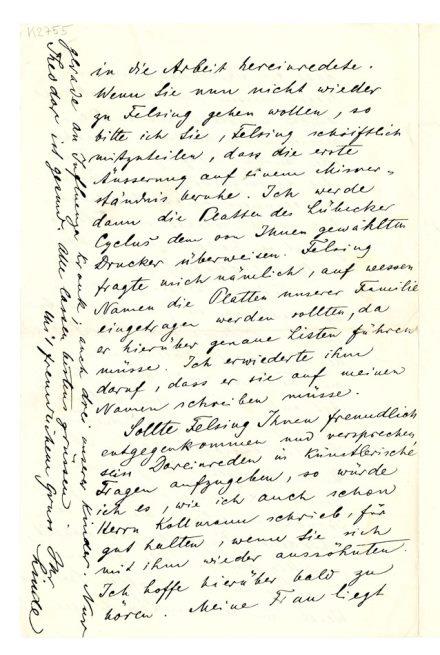 K2755
in die Arbeit hereinredete.
Wenn Sie nun nicht wieder
zu Felsing gehen wollen, so
bitte ich Sie, Felsing schriftlich
mitzuteilen, dass die erste
Äusserung auf einem Missver-
ständnis beruhe. Ich werde
dann die Platten des Lübecker
Cyclus dem von Ihnen gewählten
Drucker überweisen. Felsing
fragte mich nämlich, auf wessen
Namen die Platten unserer Familie
eingetragen werden sollten, da
er hierüber genaue Listen führen
müsse. Ich erwiederte ihm
darauf, dass er sie auf meinen
Namen schreiben müsse.
Sollte Felsing Ihnen freundlich
entgegenkommen und versprechen,
sein Dareinreden in künstlerische
Fragen aufzugeben, so würde
ich es, wie ich auch schon
Herrn Kollmann schrieb, für
gut halten, wenn Sie sich
mit ihm wieder aussöhnten.
Ich hoffe hierüber bald zu
hören. Meine Frau liegt
gerade an Influenza krank, auch drei unserer Kinder. Nur
Theodor ist gesund. Alle lassen bestens grüssen.
Mit freundlichem Gruss Ihr
Linde